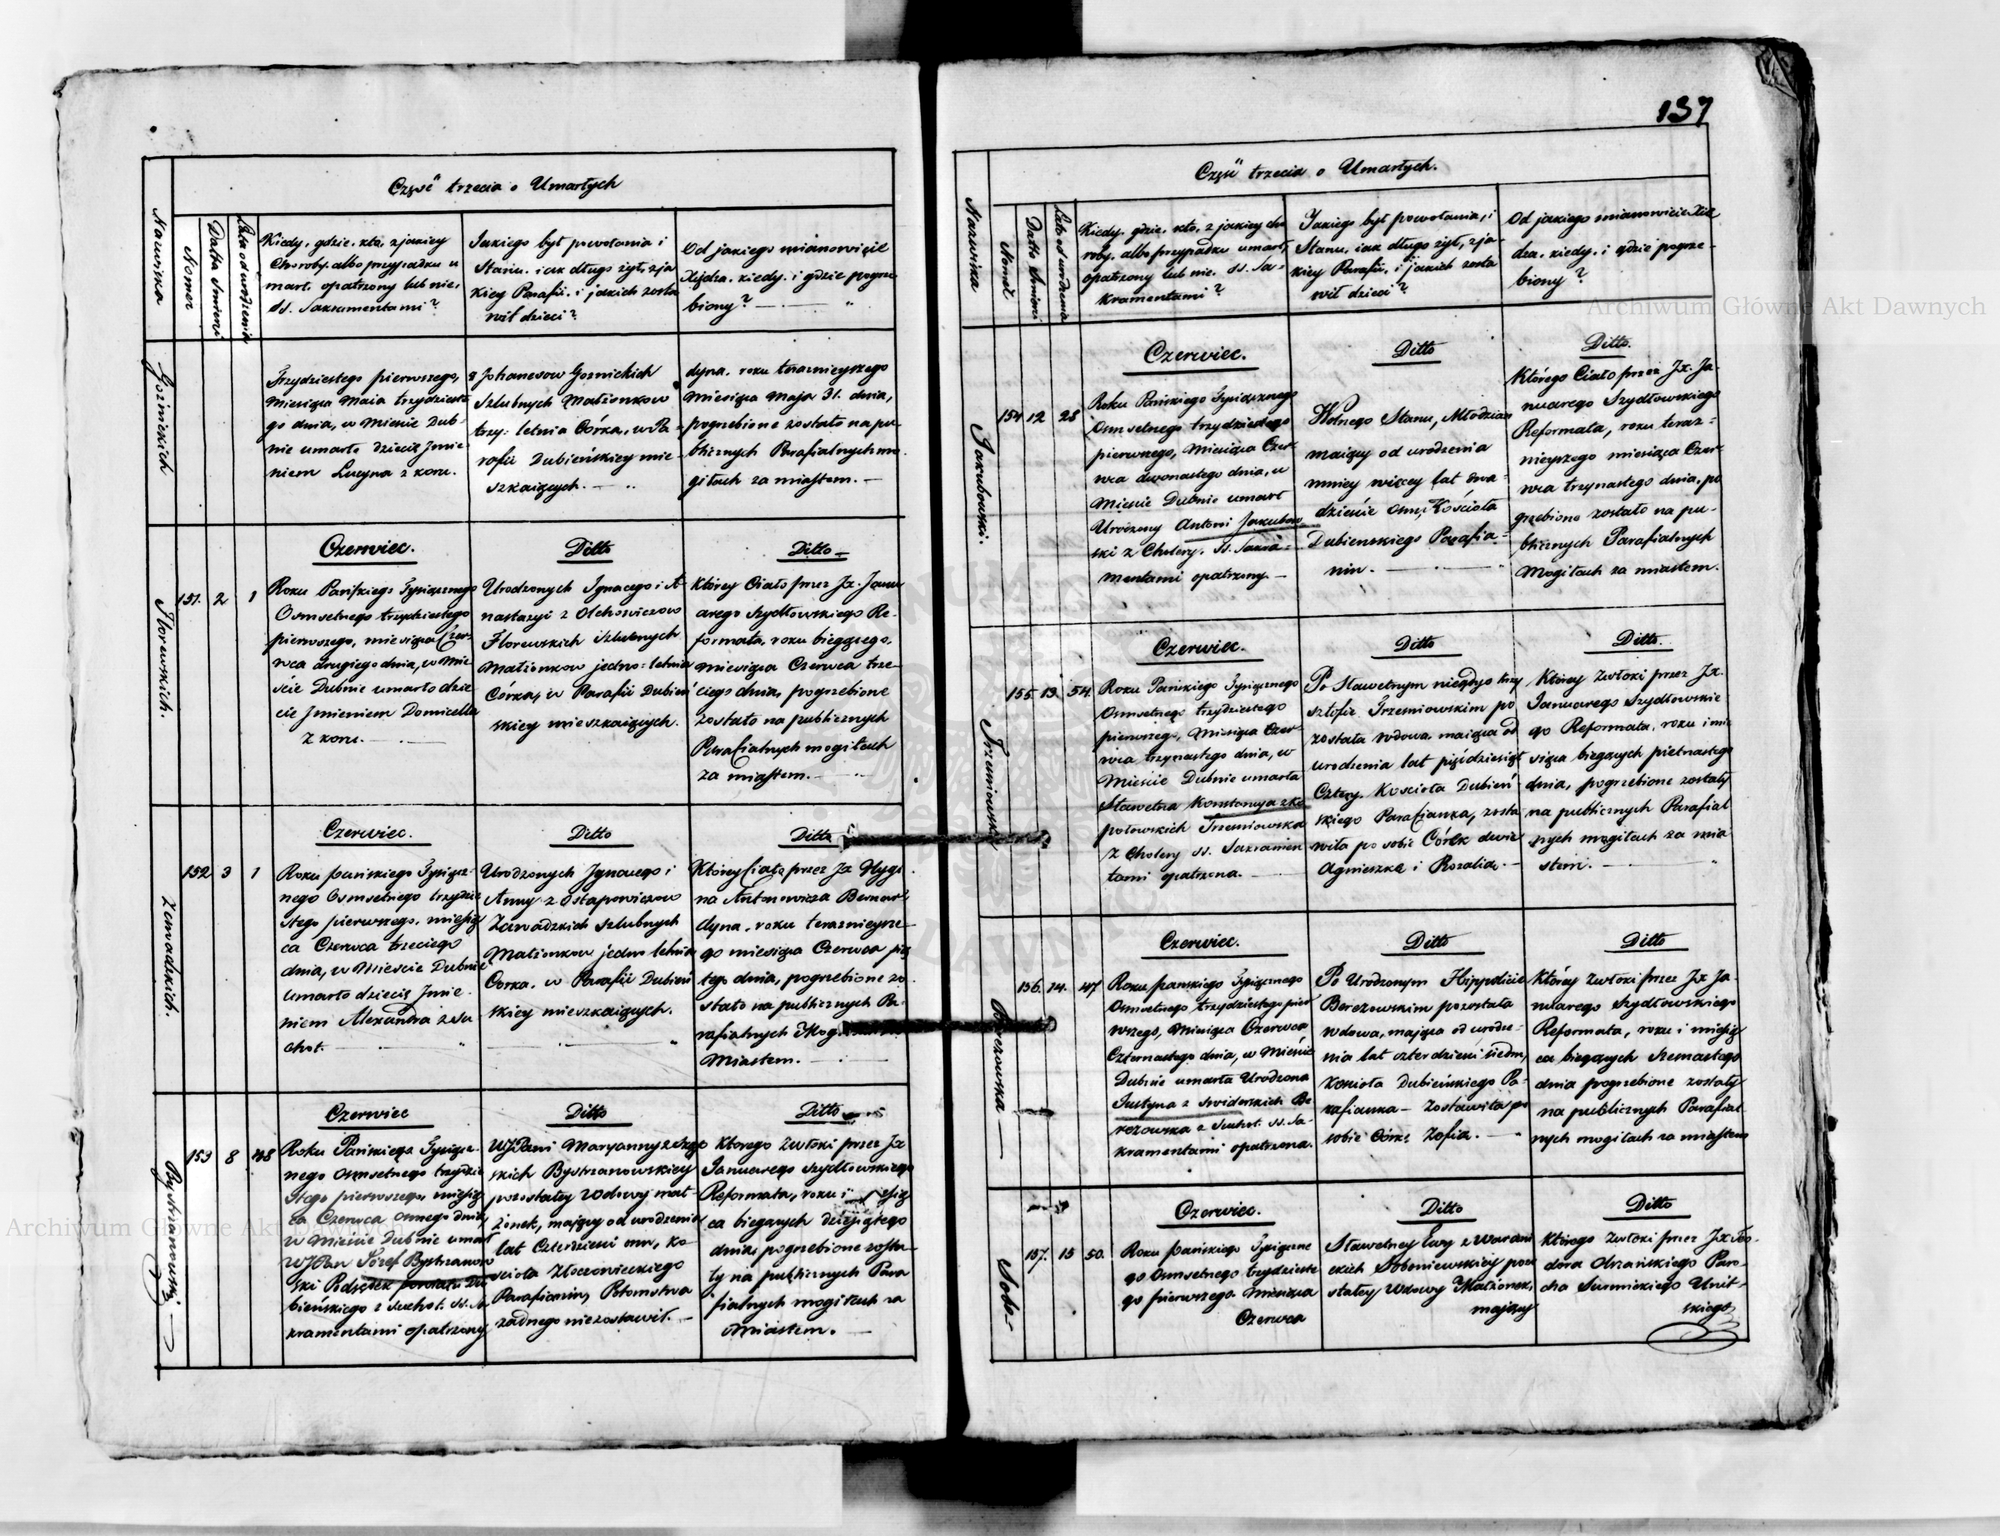 137
Część trzecia o Umarłych
Nazwiska
Nomer
Datta Smierci
Lata od urodzenia
Kiedy, gdzie, kto, z jakiey
Choroby, albo przypadku u
marł, opatrzony lub nie,
SS. Sakramentami?
Jakiego był powołania i
Stanu, iak długo żył, z ja
kiey Parafii, i jakich zosta
wił dzieci?
Od jakiego mianowicie
Xiędza, kiedy, i gdzie pogrze
biony?
Goźnickich
Trzydziestego pierwszego,
miesiąca Maia trzydzieste
go dnia, w mieście Dub-
nie umarło dziecie Jmie
niem Lucyna z koru.
Johanesow Goznickich
szlubnych Małżonkow
trzy-letnia Córka, w Pa
rafii Dubieńskiey mie
szkaiących.
dyna, roku teraznieyszego
miesiąca maja 31. dnia,
pogrzebione zostało na pu-
blicznych Parafialnych mo
giłach za miastem.
Florewskich.
151. 2 1
Czerwiec.
Roku Pańskiego Tysiącznego
Osmsetnego trzydziestego
pierwszego, miesiąca Czer-
wca drugiego dnia, w Mie
ście Dubnie umarło dzie
cie Jmieniem Domicella
z koru.
Ditto
Urodzonych Ignacego i A-
nastazyi z Olchowiczow
Florewskich szlubnych
Małżonkow jedno-letnia
Córka, w Parafii Dubień
skiey mieszkaiących.
Ditto
Którey Ciało przez Jx. Janu
arego Szydłowskiego Re-
formata, roku bieggcego,
miesiąca Czerwca trze-
ciego dnia, pogrzebione
zostało na publicznych
Parafialnych mogiłach
za miastem.
Zawadzkich.
152 3 1
Czerwiec.
Roku pańskiego Tysiącz-
nego Osmsetnego trzydzie
stego pierwszego, miesią
ca Czerwca trzeciego
dnia, w Mieście Dubnie
umarło dziecie Jmie-
niem Alexandra z su
chot.
Ditto
Urodzonych Jgnacego i
Anny z Ostapowiczow
Zawadzkich szlubnych
Małżonkow jedno letnia
Corka, w Parafii Dubień
skiey mieszkaiących.
Ditto
Którey Ciało przez Jx Hygi-
na Antonowicza Bernar
dyna, roku teraznieysze-
go miesiąca Czerwca pią
tego dnia, pogrzebione zo-
stało na publicznych Pa-
rafialnych Mog
Miastem.
Bystrzanowski
153 8 48
Czerwiec
Roku Pańskiego Tysiącz-
nego osmsetnego trzydzie
stego pierwszego, miesią
ca Czerwca osmego dnia,
w Mieście Dubnie umarł
WJPan Józef Bystrzanow
ski powiatu Du
bieńskiego z suchot. SS. Sa
kramentami opatrzony
Ditto
WJPani Maryanny
skich Bystrzanowskiey
pozostałey wdowy mał-
żonek, maiący od urodzenia
lat Czterdzieści osm, ko-
ścioła Złoczowieckiego
Parafianin, Potomstwa
żadnego niezostawił.
Ditto
Ktorego zwłoki przez Jx
Januarego Szydłowskiego
Reformata, roku i miesią
ca bieżących dziewiątego
dnia pogrzebione zosta-
ły na publicznych Para
fialnych mogiłach za
Miastem.
Część trzecia o Umarłych.
Nazwiska
Nomer
Datta Smierci
Lata od urodzenia
Kiedy, gdzie, kto, z jakiey cho
roby, albo przypadku umarł,
opatrzony lub nie, SS. Sa-
kramentami?
Jakiego był powołania, i
Stanu, iak długo żył, z ja-
kiey Parafii, i jakich zosta
wił dzieci?
Od jakiego mianowicie Xię
dza, kiedy, i gdzie pogrze-
biony?
Jakubowski.
154 12 28
Czerwiec.
Roku Pańskiego Tysiącznego
Osmsetnego trzydziestego
pierwszego, Miesiąca Czer-
wca dwonastego dnia, w
Mieście Dubnie umarł
Urodzony Antoni Jakubow
ski z Cholery. SS. Sakra-
mentami opatrzony.
Ditto
Wolnego Stanu, Młodzian
maiący od urodzenia
mniey więcey lat dwa-
dzieście osm, Kościoła
Dubienskiego Parafia-
nin.
Ditto.
Którego Ciało przez Jx. Ja-
nuarego Szydłowskiego
Reformata, roku teraz-
nieyszego miesiąca Czer-
wca trzynastego dnia, po
grzebiono zostało na pu-
blicznych Parafialnych
Mogiłach za miastem.
Trzemiowska
155. 13. 54
Czerwiec.
Roku Pańskiego Tysiącznego
osmsetnego trzydziestego
pierwszego, Miesiąca Czer-
wca trzynastego dnia, w
Mieście Dubnie umarła
Sławetna Konstancya
połowskich Trzemiowska
z Cholery SS. Sakramen
tami opatrzona.
Ditto
Po Sławetnym niegdys krzy
sztofie Trzemiowskim po
została wdowa, maiąca od
urodzenia lat pięćdziesiąt
Cztery, Kościoła Dubień
skiego Parafianka, zosta
wiła po sobie Córek dwie
Agnieszka i Rozalia.
Ditto.
Którey zwłoki przez Jx.
Januarego Szydłowskie
go Reformata, roku i mie
siąca bieżących pietnastego
dnia, pogrzebione zostały
na publicznych Parafial
nych mogiłach za mia
stem.
Berezowska
156. 14. 47
Czerwiec.
Roku pańskiego Tysiącznego
Osmsetnego trzydziestego pier
wszego, Miesiąca Czerwca
Czternastego dnia, w Mieście
Dubnie umarła Urodzona
Justyna z Swiderskich Be
rezowska z suchot. SS. Sa-
kramentami opatrzona.
Ditto
Po Urodzonym Hippolicie
Berezowskim pozostała
wdowa, maiąca od urodze-
nia lat czterdzieści siedm,
kościoła Dubieńskiego Pa-
rafianka — Zostawiła po
sobie Córkę Zofia.
Ditto
Którey zwłoki przez Jx Ja-
nuarego Szydłowskiego
Reformata, roku i miesią
ca bieżących szesnastego
dnia pogrzebione zostały
na publicznych Parafial
nych mogiłach za miastem
Sobo-
157. 15 50.
Czerwiec.
Roku pańskiego Tysiączne
go Osmsetnego trzydzieste
go pierwszego Miesiąca
Czerwca
Ditto
Sławetney Ewy z
Soboniewskiey pozo
stałey Wdowy Małżonek,
maiący
Ditto
Którego zwłoki przez Jx
dora Paro-
cha Surmickiego Unit-
skiego
Archiwum Główne Akt Dawnych
Archiwum Główne Akt Dawnych